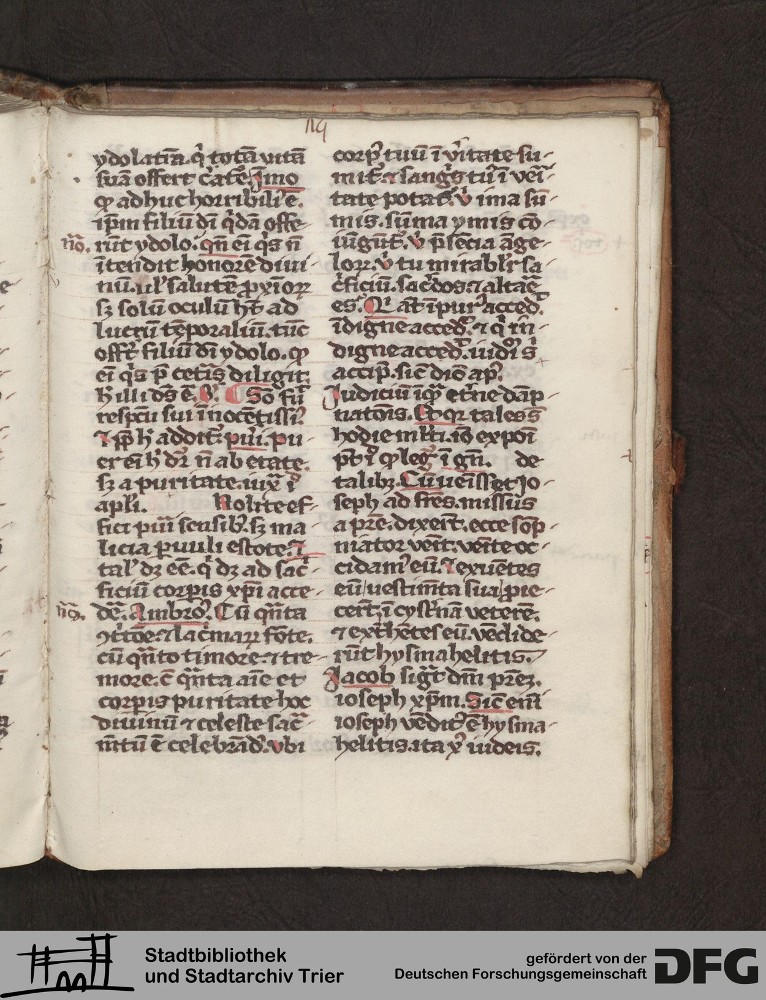 114
ydolat̃ia. q̇ totā uitā
suā offert cāte. Jmo
ꝙ adhuc horribili ē.
ip̄m filiū dī q̇dā offe-
nō. rūt ydolo. qn̄ ei q̇s n̄
ītendit honorē diui-
nū. ul' salutem ꝓxīoꝝ
sꝫ solū oculū ht̄ ad
lucrū tēporaliū. tūc
offt̄ filiū dī ydolo. ꝙ
ei q̇s p̄ cetis diligit.
h' illi ds̄ ē.
respcū sui īnocētissī.
addit. pu-
er ei h' dr̄ n̄ ab etate.
sꝫ a puritate. iux̄ ī
apli. Nolite ef-
fici pūi sensibꝫ. sꝫ ma-
licia ꝑuuli estote. ⁊
tal' dꝫ eē. q̇ dꝫ ad sac̄-
ficiū corpis xp̄i acce-
nō. dē. Ambro'. Cū q̄nta
ꝯtͥtōe. ⁊ lac̄maꝝ fōte.
cū q̄nto timore. ⁊ tre-
more. ē q̄nta aīe et
corpis puritate hoc
diuinū ⁊ celeste sac̄-
m̄tū ē celebrād'. vbi
corp' tuū ī v̄itate su-
mit'. ⁊ sangͥs tū' ī vei-
tate potat'. v̇ ima sū-
mis. sūma ymis cō-
iūgūt'. v̇ p̄sēcia āge-
loꝝ. v̇ tu mirabl'r sa-
c̄ficiū. sac̄dos ⁊ altāe
es. Q' at ī pur' acced.
īdigne acced'. ⁊ q̇ in-
digne acced'. iudiō s'
accip̄. sic̄ dic̄ ap'.
Judiciū iq̇ et̄ne dāp-
natōis. Et qꝛ tales s̄
hodie ml'ti. iō expōi
pt̄ ī ꝙ leg' ī gn̄. de
talibꝫ. Cū ueniss̄et Jo-
seph ad fr̄es. missus
a pr̄e. dixerīt. ecce sōp-
niator veīt. veīte oc-
cidam' eū. ⁊ exuētes
eū uestim̄ta sua. ꝓie-
cer̄t ī cyst̄nā veterē.
⁊ ext̄hētes eū. vēdide-
rūt hysmahelitis.
Jacob sigt̄ dm̄ prēꝫ.
ioseph xp̄m. Sic̄ enī
ioseph vēdit' ē hysma-
helitis. ita xͬ iudeis.
Stadtbibliothek
und Stadtarchiv Trier
gefördert von der
Deutschen Forschungsgemeinschaft
DFG